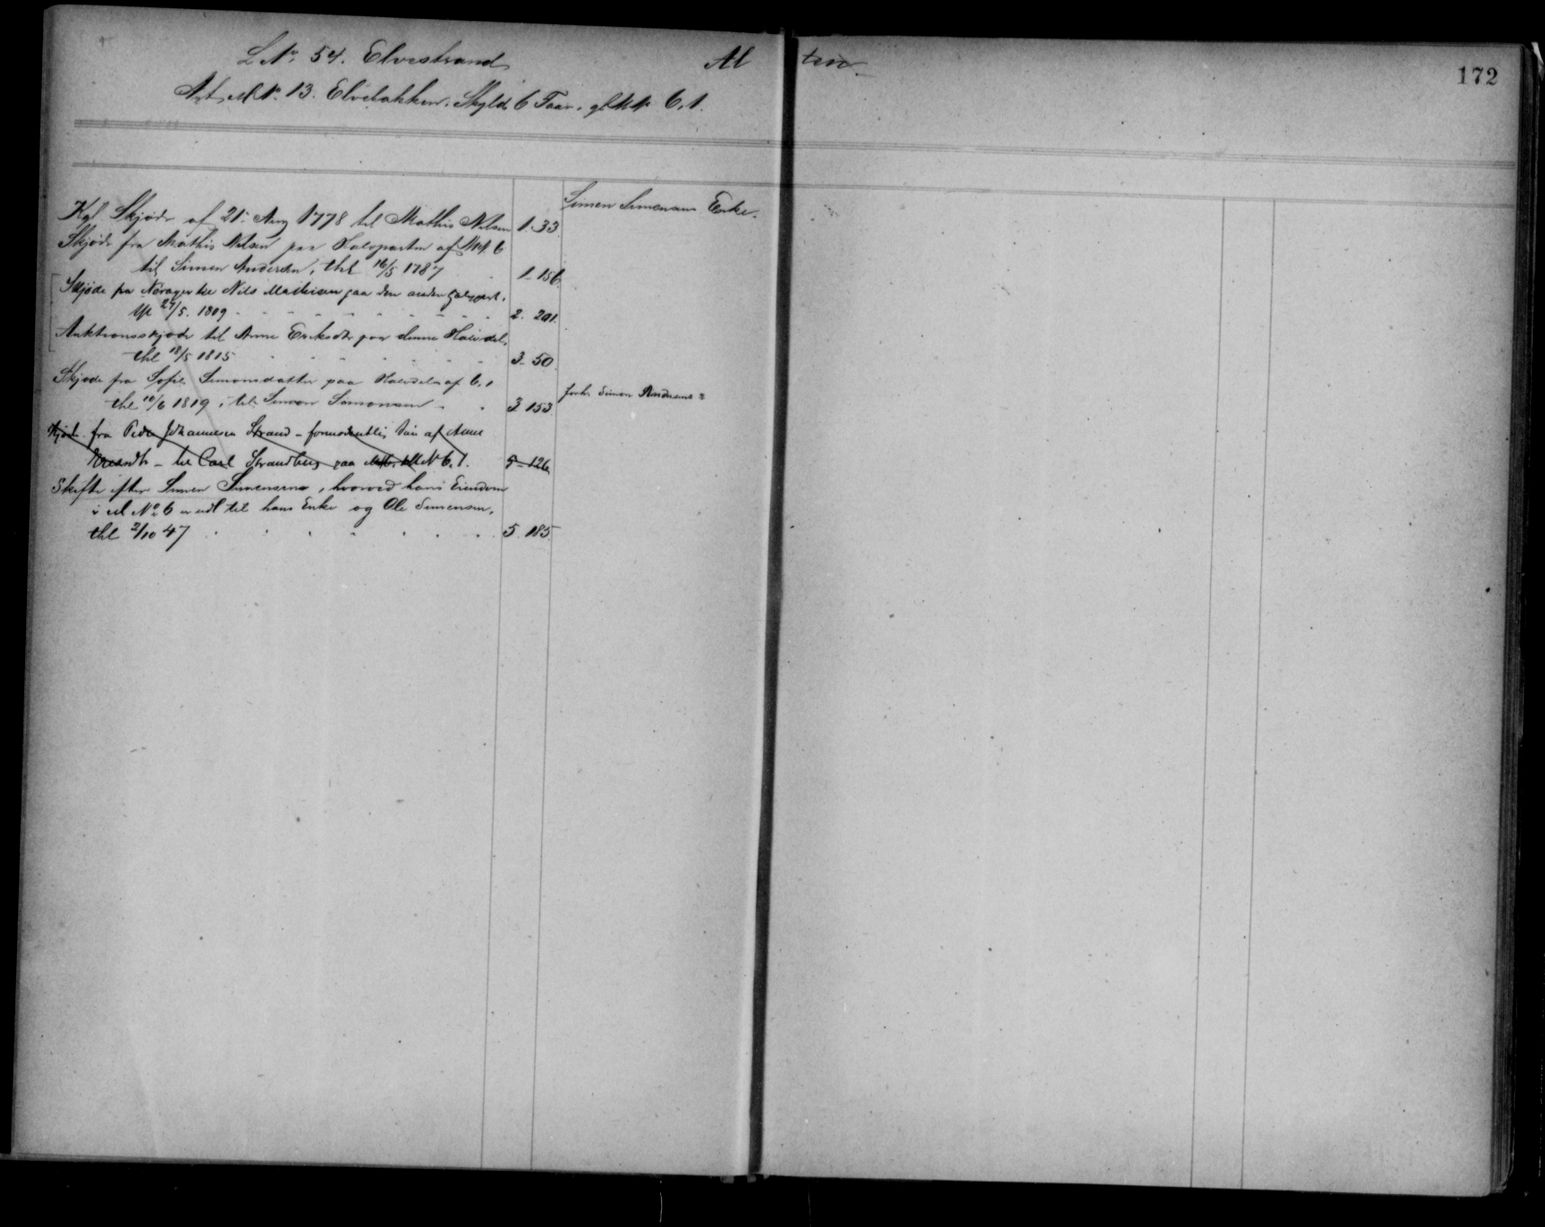 L No. 54. Elvestrand Al ten.
172
Mt. No. 13. Elvebakken. Skyld 6 Taar. gl. M. No. 6,1.
Simen Simensens Enke.
Kgl. Skjøde af 21. Aug 1778 til Mathis Nilsen 1.33
Skjøde fra Mathis Nilsen paa Halvparten af M.N. 6
til Simen Andersen, thl 16/5 1787 1.156
Skjøde fra til Nils Mathisen paa den anden Halvpart.
thl 24/5. 1809 2. 201
Auktionsskjøde til Anne paa denne Halvdel,
thl 18/5 1815 3. 50
Skjøde fra Sofie Simonsdatter paa Halvdelen af 6,1
forh. Simen Andersens
thl 10/6 1819, til Simon Simonsen 3. 153
Skjøde fra Peder Johannesen Strand - formodentlig af Anne
- til Carl Strandberg paa M N 6,1. 5-126
Skifte efter Simen Simensen, hvorved hans Eiendom
i M No 6 er udl til hans Enke og Ole Simensen,
thl 2/10 47 5. 185